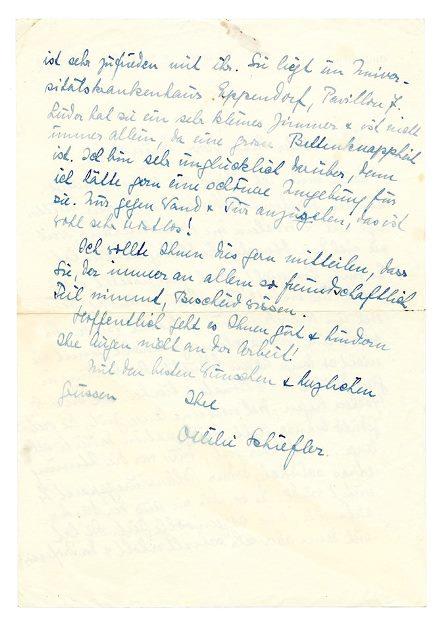 ist sehr zufrieden mit ihr. Sie liegt im Univer-
sitätskrankenhaus Eppendorf, Pavillon 7.
Leider hat sie ein sehr kleines Zimmer & ist nicht
immer allein, da eine grosse Bettenknappheit
ist. Ich bin sehr unglücklich darüber, denn
ich hätte gern eine schönere Umgebung für
sie. Nur gegen Wand & Tür anzusehen, das ist
wohl sehr trostlos!
Ich wollte Ihnen dies gern mitteilen, dass
Sie, der immer an allem so freundschaftlich
Teil nimmt, Bescheid wissen.
Hoffentlich geht es Ihnen gut & hindern
Ihre Augen nicht an der Arbeit!
Mit den besten Wünschen & herzlichen
Grüssen
Ihre
Ottilie Schiefler.